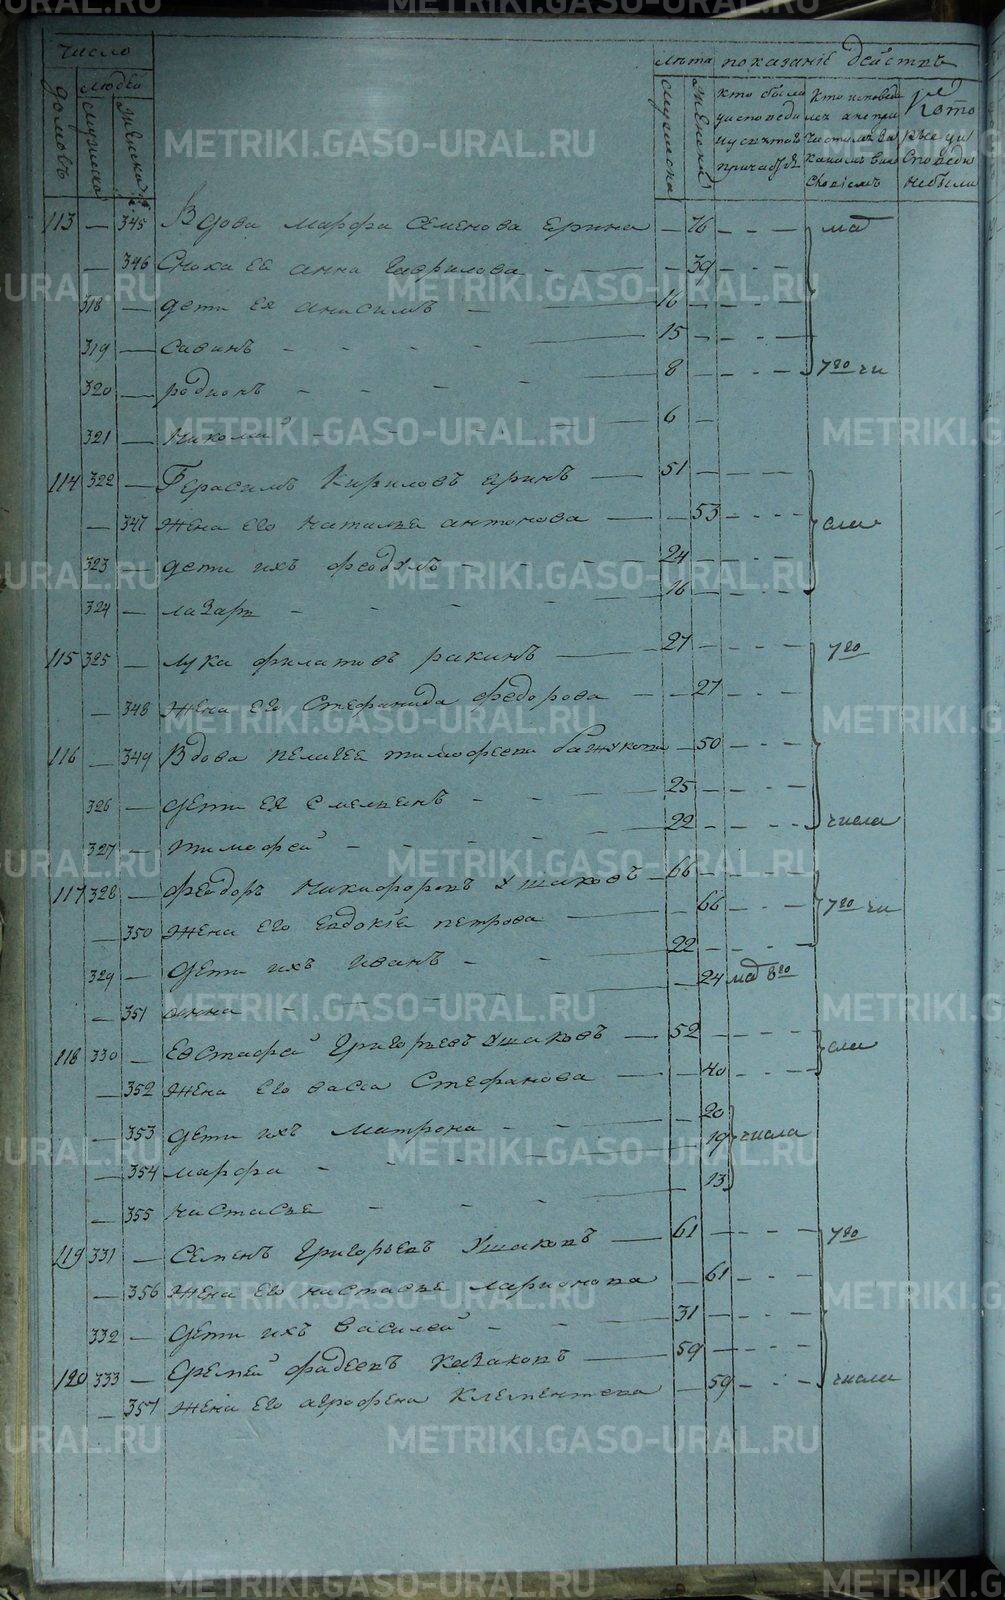 число
домовъ
людей
мужеска
женска
лѣта
мужеска
женска
показанiе действъ
кто были
исповеди
кто исповеда
лся а не при
113 — 345 Вдова марфа семенова ерина — 76 — — — мая
— 346 Сноха ея анна гаврилова — 39 — — —
318 — дети ея анисимъ — 16 — — —
319 — саванъ — 15 — — —
320 — родионъ — 8 — — — 7го чи
321 — николай — 6 —
114 322 — Герасимъ Кириловъ еринъ — 51 — — —
— 347 жена его наталья антонова — 53 — — — сла
323 — дети ихъ феодулъ — 24 — — —
324 — лазарь — 16 — — —
115 325 — лука филатовъ ракинъ — 27 — — — 7го
— 348 жена его Стефанида федорова — 27 — — —
116 — 349 Вдова пелагея тимофеева — 50 — — —
326 — дети ея емельянъ — 25 — — —
327 — тимофей — 22 — — — числа
117 328 — фейдоръ никифоровъ Ушаковъ — 66 — — —
— 350 жена его евдокiея петрова — 66 — — — 7го чи
329 — дети ихъ иванъ — 22 — — —
— 351 анна — 24 мая 8го
118 330 — Евстафей Григорьевъ Ушаковъ — 52 — — — сла
— 352 жена его васса Стефанова — 40 — — —
— 353 дети ихъ матрона — 20
— 354 марфа — 19 числа
— 355 настасья — 13
119 331 — Семенъ Григорьевъ Ушаковъ — 61 — — — 7го
— 356 жена его настасья ларионова — 61 — — —
332 — дети ихъ василей — 31 — — —
120 333 — Еремей фадеевъ Казаковъ — 59 — — —
— 357 жена его агрофена Клементева — 59 — — — числа
METRIKI.GASO-URAL.RU